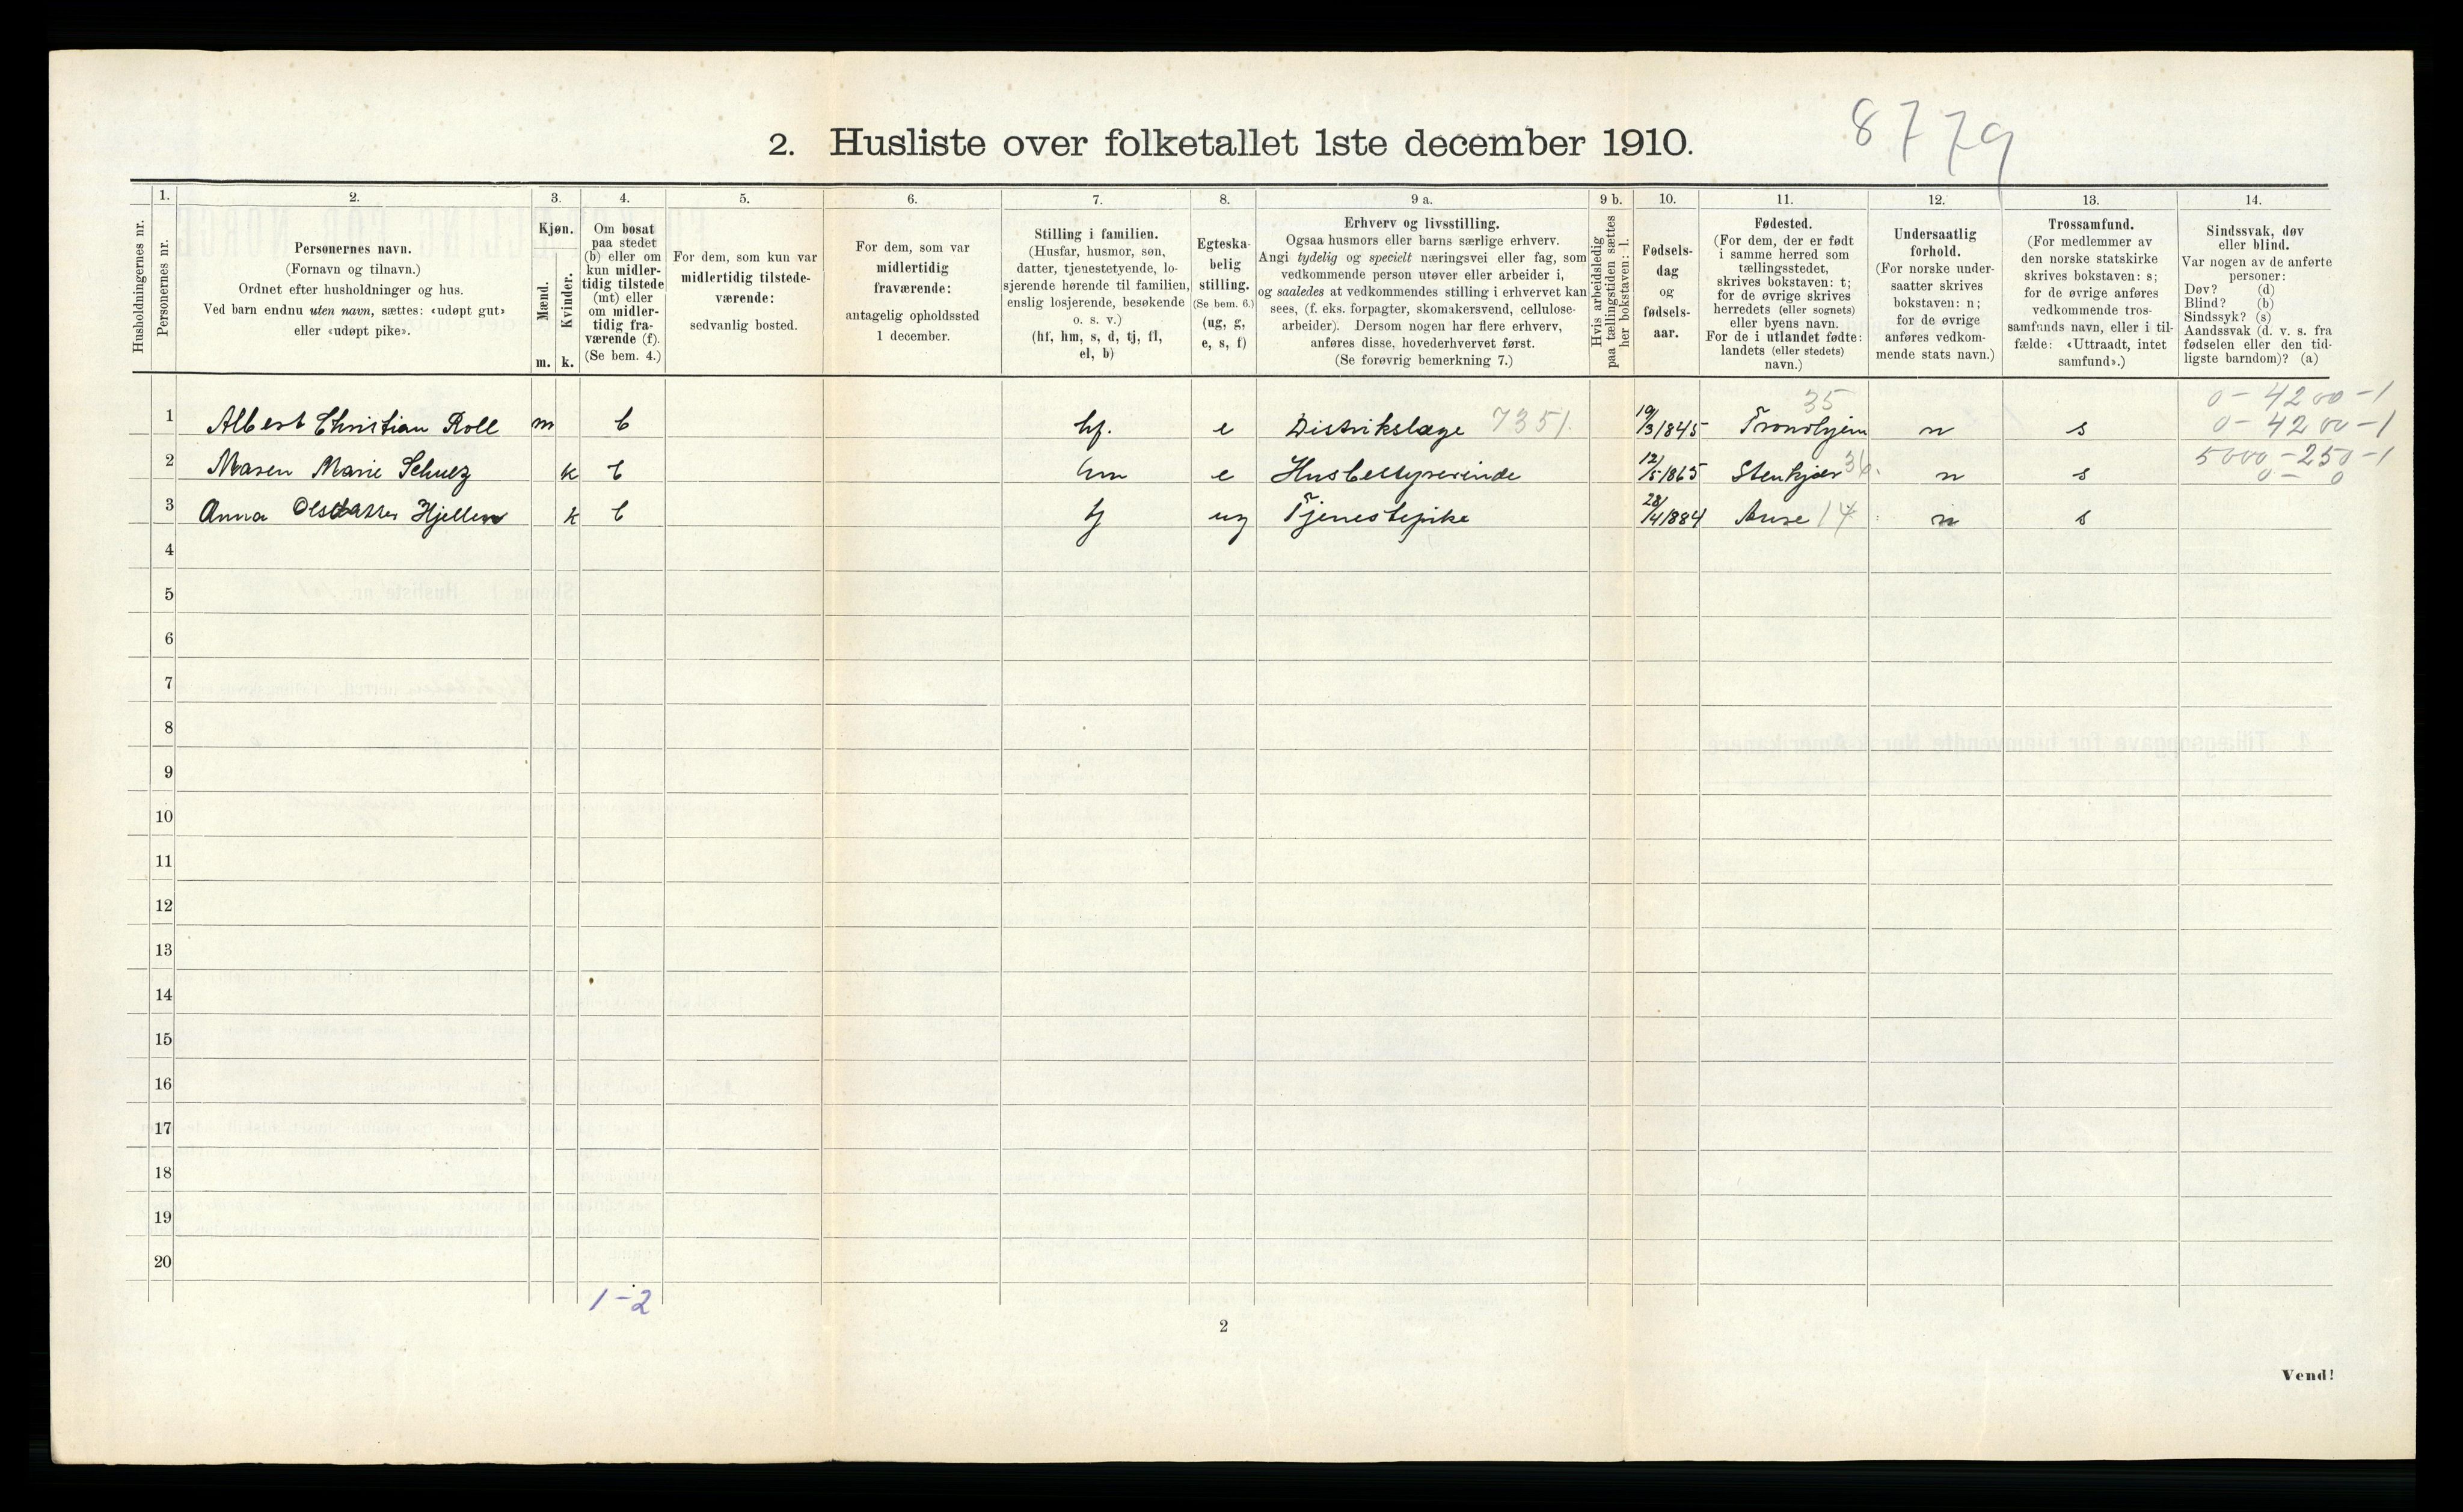 8779
2. Husliste over folketallet 1ste december 1910.
Husholdningernes nr.
1.
Personernes nr.
2.
Personernes navn.
(Fornavn og tilnavn.)
Ordnet efter husholdninger og hus.
Ved barn endnu uten navn, sættes: «udøpt gut»
eller «udøpt pike».
3.
Kjøn.
Mænd.
m.
Kvinder.
k.
4.
Om bosat
paa stedet
(b) eller om
kun midler-
tidig tilstede
(mt) eller
om midler-
tidig fra-
værende (f).
(Se bem. 4.)
5.
For dem, som kun var
midlertidig tilstede-
værende:
sedvanlig bosted.
6.
For dem, som var
midlertidig
fraværende:
antagelig opholdssted
1 december.
7.
Stilling i familien.
(Husfar, husmor, søn,
datter, tjenestetyende, lo-
sjerende hørende til familien,
enslig losjerende, besøkende
o. s. v.)
(hf, hm, s, d, tj, fl,
el, b)
8.
Egteska-
belig
stilling.
(Se bem. 6.)
(ug, g,
e, s, f)
9 a.
Erhverv og livsstilling.
Ogsaa husmors eller barns særlige erhverv.
Angi tydelig og specielt næringsvei eller fag, som
vedkommende person utøver eller arbeider i,
og saaledes at vedkommendes stilling i erhvervet kan
sees, (f. eks. forpagter, skomakersvend, cellulose-
arbeider). Dersom nogen har flere erhverv,
anføres disse, hovederhvervet først.
(Se forøvrig bemerkning 7.)
9 b.
Hvis arbeidsledig
paa tællingstiden sættes
her bokstaven: l.
10.
Fødsels-
dag
og
fødsels-
aar.
11.
Fødested.
(For dem, der er født
i samme herred som
tællingsstedet,
skrives bokstaven: t;
for de øvrige skrives
herredets (eller sognets)
eller byens navn.
For de i utlandet fødte:
landets (eller stedets)
navn.)
12.
Undersaatlig
forhold.
(For norske under-
saatter skrives
bokstaven: n;
for de øvrige
anføres vedkom-
mende stats navn.)
13.
Trossamfund.
(For medlemmer av
den norske statskirke
skrives bokstaven: s;
for de øvrige anføres
vedkommende tros-
samfunds navn, eller i til-
fælde: «Uttraadt, intet
samfund».)
14.
Sindssvak, døv
eller blind.
Var nogen av de anførte
personer:
Døv? (d)
Blind? (b)
Sindssyk? (s)
Aandssvak (d. v. s. fra
fødselen eller den tid-
ligste barndom)? (a)
35 0-4200-1
1 Albert Christian Roll m b hf. e Distrikslæge 7351. 19/3 1845 Trondhjem n s 0-4200-1
5000-250-1
2 Maren Marie Schulz k b hm e Husbestyrerinde 12/5 1865 Stenkjær 36. n s 0-0
3 Anna Olsdatter Hjellen k b tj ug Tjenestepike 28/4 1884 Aure 14 n s
4
5
6
7
8
9
10
11
12
13
14
15
16
17
18
19
20
1-2
2
Vend!